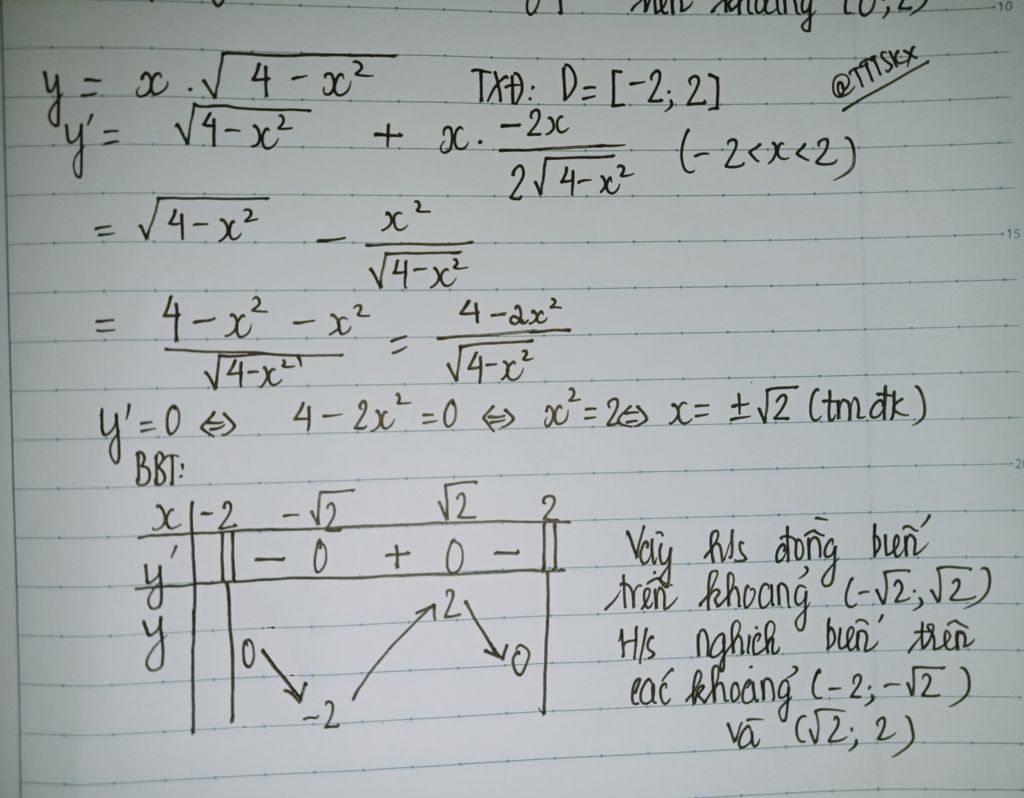 trên khoảng (0; 2)
10
y = x . √(4 − x²) TXĐ: D = [-2; 2] @TTTSKX
y' = √(4 − x²) + x . (−2x)/(2√(4−x²)) (−2<x<2)
= √(4−x²) − x²/√(4−x²)
15
= (4 − x² − x²)/√(4−x²) = (4 − 2x²)/√(4−x²)
y' = 0 ⇔ 4 − 2x² = 0 ⇔ x² = 2 ⇔ x = ±√2 (tmđk)
BBT:
20
x | −2 −√2 √2 2
y' || − 0 + 0 − ||
y 0 −2 2 0
Vậy h/s đồng biến
trên khoảng (−√2; √2)
H/s nghịch biến trên
các khoảng (−2; −√2)
và (√2; 2)